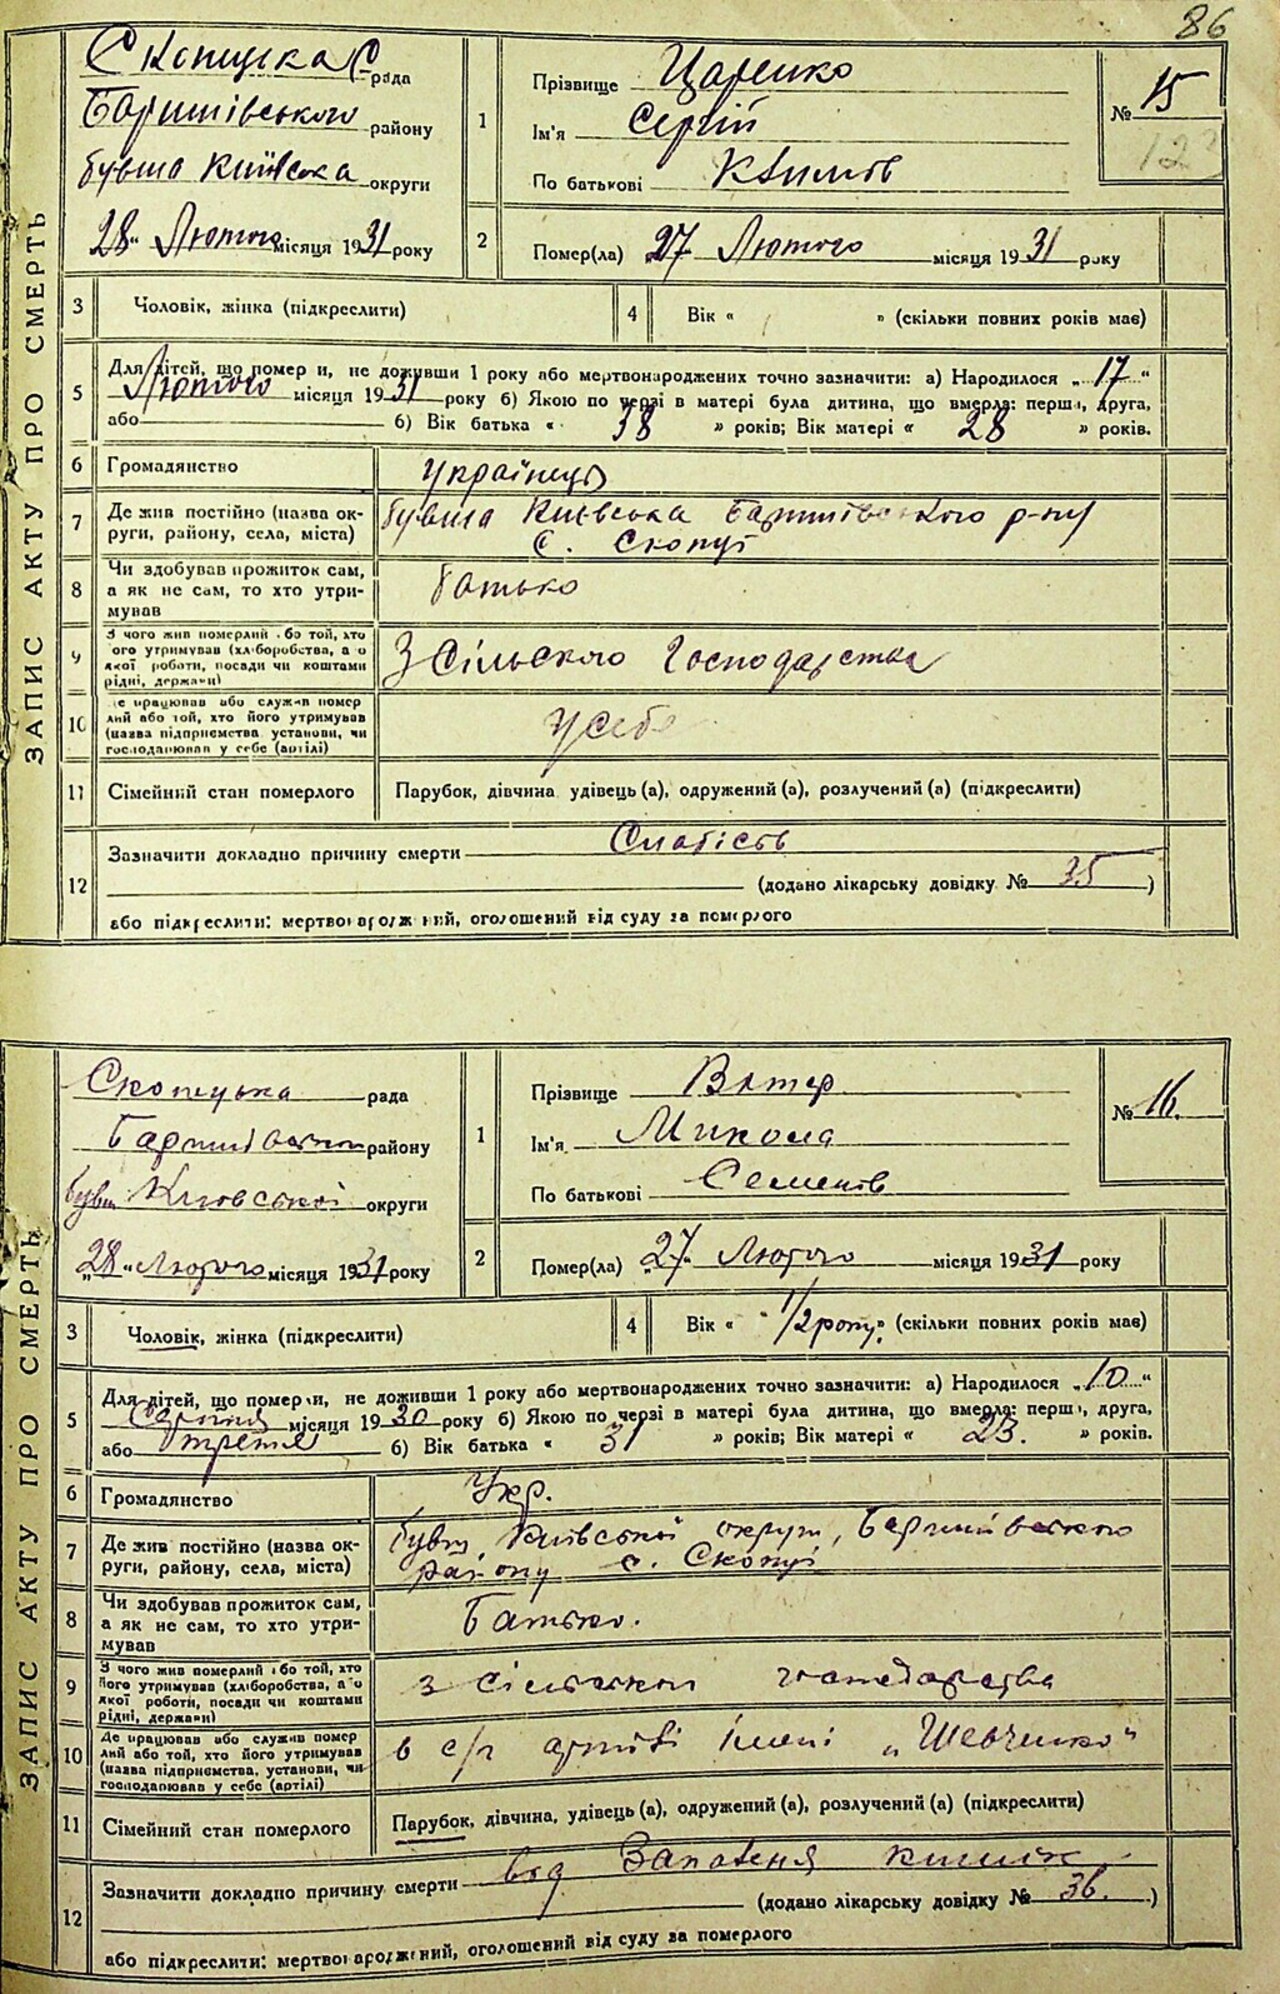 86
ЗАПИС АКТУ ПРО СМЕРТЬ
Скопцска С рада
Баришівського району
бувша Київська округи
28 Лютого місяця 1931 року
1 Прізвище Царенко
Ім'я Сергій
По батькові Климів
№ 15
123
2 Помер(ла) 27 Лютого місяця 1931 року
3 Чоловік, жінка (підкреслити)
4 Вік « » (скільки повних років має)
5 Для дітей, що помер и, не доживши 1 року або мертвонароджених точно зазначити: а) Народилося „17“
Лютого місяця 1931 року б) Якою по черзі в матері була дитина, що вмерла: перша, друга,
або б) Вік батька « 38 » років; Вік матері « 28 » років.
6 Громадянство українець
7 Де жив постійно (назва ок-
руги, району, села, міста)
бувша Київська Баришівського р-ну
с. Скопці
8 Чи здобував прожиток сам,
а як не сам, то хто утри-
мував
батько
9 З чого жив померлий або той, хто
ого утримував (хліборобства, а о
якої роботи, посади чи коштами
рідні, держави)
З Сільского Господарства
10 Де працював або служив помер
лий або той, хто його утримував
(назва підприємства установи, чи
господарював у себе (артілі)
у себе
11 Сімейний стан померлого
Парубок, дівчина удівець (а), одружений (а), розлучений (а) (підкреслити)
12 Зазначити докладно причину смерти Слабість
(додано лікарську довідку № 35 )
або підкреслити: мертвонароджений, оголошений від суду за померлого
ЗАПИС АКТУ ПРО СМЕРТЬ
Скопецька рада
Баришівського району
бувш Київської округи
„28“ Лютого місяця 1931 року
1 Прізвище
Ім'я Микола
По батькові Семенов
№ 16.
2 Помер(ла) „27“ Лютого місяця 1931 року
3 Чоловік, жінка (підкреслити)
4 Вік « 1/2 року » (скільки повних років має)
5 Для дітей, що померли, не доживши 1 року або мертвонароджених точно зазначити: а) Народилося „10“
Серпня місяця 1930 року б) Якою по черзі в матері була дитина, що вмерла: перша, друга,
або третя б) Вік батька « 31 » років; Вік матері « 23. » років.
6 Громадянство Укр.
7 Де жив постійно (назва ок-
руги, району, села, міста)
бувш Київської округи, Баришівського
району с. Скопці
8 Чи здобував прожиток сам,
а як не сам, то хто утри-
мував
Батько.
9 З чого жив померлий або той, хто
його утримував (хліборобства, а о
якої роботи, посади чи коштами
рідні, держави)
з сільського господарства
10 Де працював або служив помер
лий або той, хто його утримував
(назва підприємства, установи, чи
господарював у себе (артілі)
в с/г артілі імені „Шевченко“
11 Сімейний стан померлого
Парубок, дівчина, удівець (а), одружений (а), розлучений (а) (підкреслити)
12 Зазначити докладно причину смерти від Запаленя кишок
(додано лікарську довідку № 36. )
або підкреслити: мертвонароджений, оголошений від суду за померлого